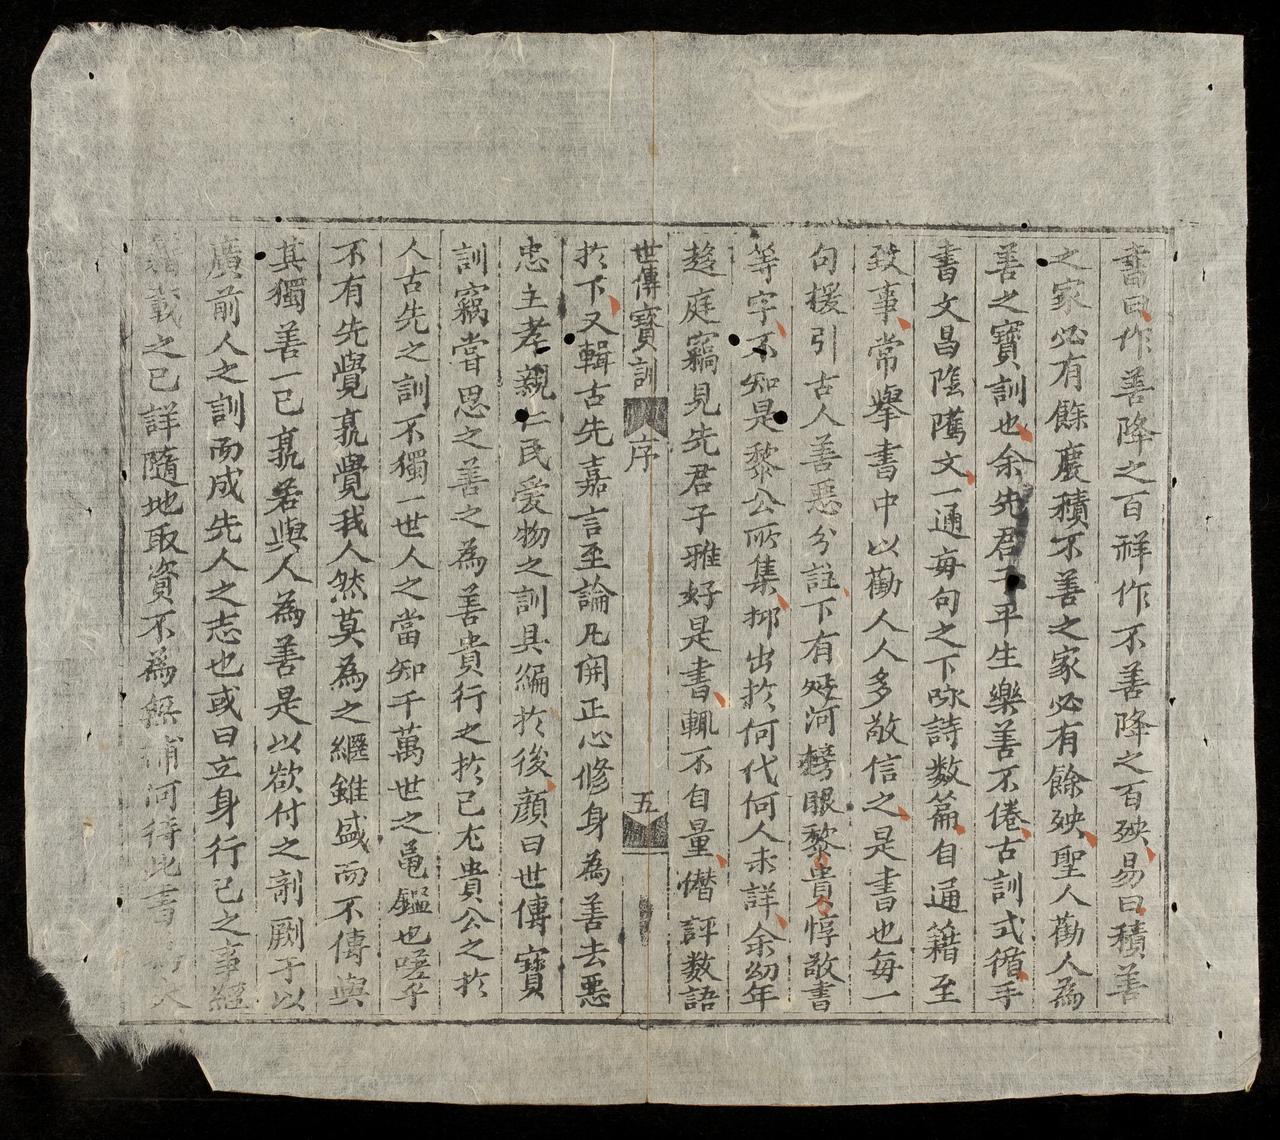 書曰作善降之百祥作不善降之百殃易曰積善
之家必有餘慶積不善之家必有餘殃聖人勸人為
善之寶訓也余先君子平生樂善不倦古訓式循手
書文昌陰隲文一通每句之下咏詩数篇自通籍至
致事常舉書中以勸人人多敬信之是書也每一
句援引古人善惡分註下有延河榜眼黎貴惇敬書
等字不知是黎公所集抑出於何代何人未詳余幼年
趍庭竊見先君子雅好是書輒不自量僣評数語
世傳寶訓 序 五
於下又輯古先嘉言至論凡開正心修身為善去惡
忠主孝親仁民爱物之訓具編於後顔曰世傳寶
訓竊嘗思之善之為善貴行之於己尤貴公之於
人古先之訓不獨一世人之當知千萬世之黾鑑也嗟乎
不有先覺孰覺我人然莫為之繼雖盛而不傳與
其獨善一已孰若與人為善是以欲付之剞劂于以
廣前人之訓而成先人之志也或曰立身行己之事經
載之已詳隨地取資不為無補何待此書